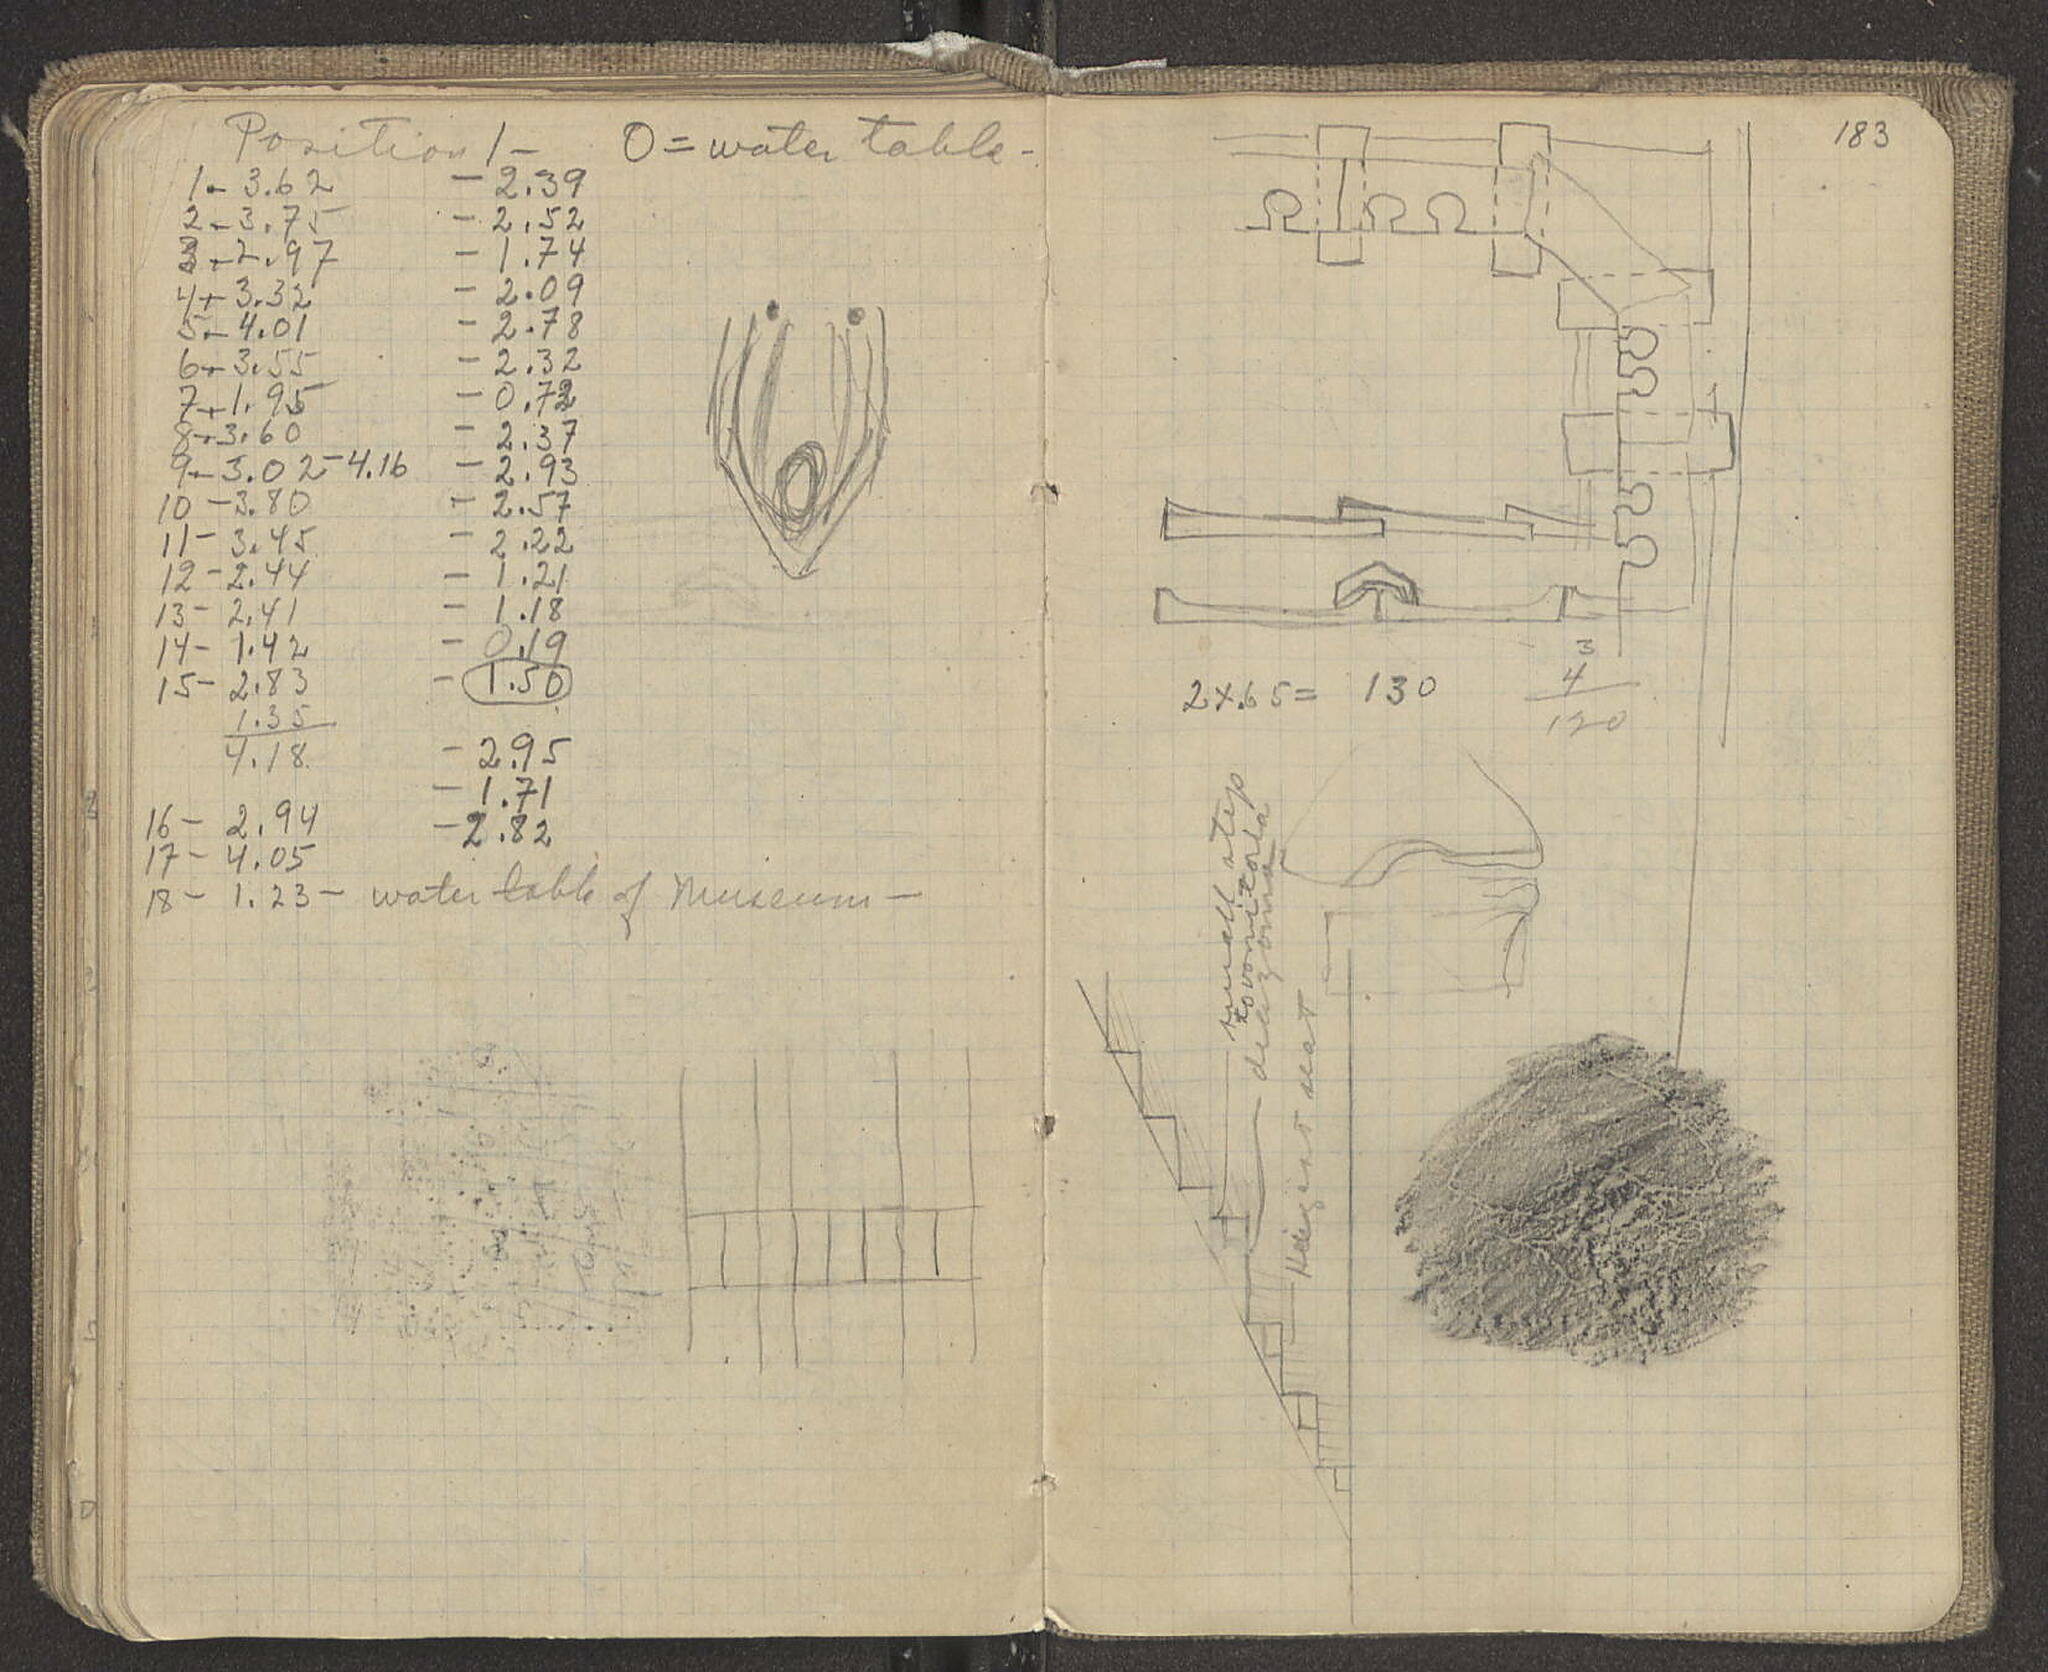 Position 1-
0 = water table -
1 - 3.62 - 2.39
2 - 3.75 - 2.52
3 - 2.97 - 1.74
4 - 3.32 - 2.09
5 - 4.01 - 2.78
6 - 3.55 - 2.32
7 - 1.95 - 0.72
8 - 3.60 - 2.37
9 - 3.02 - 4.16 - 2.93
10 - 3.80 - 2.57
11 - 3.45 - 2.22
12 - 2.44 - 1.21
13 - 2.41 - 1.18
14 - 1.42 - 0.19
15 - 2.83 - 1.50
1.35
4.18 - 2.95
- 1.71
16 - 2.94 - 2.82
17 - 4.05
18 - 1.23 - water table of Museum -
183
2 x .65 = 130
3
4
120
small step
to vomitoria
seat